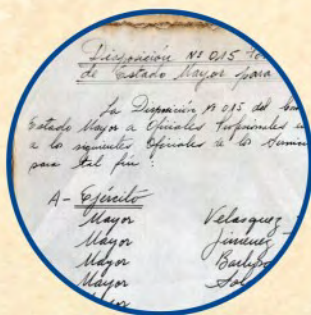 Disposición Nº 015
de Estado Mayor para
La Disposición Nº 015 del
Estado Mayor a Oficiales Profesionales
a los siguientes Oficiales de los
para tal fin:
A- Ejército
Mayor Velasquez
Mayor Jimenez
Mayor
Mayor
Mayor